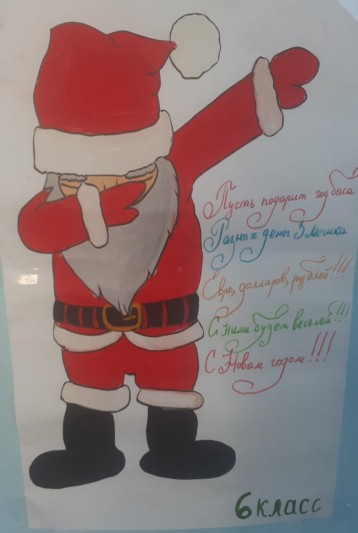 Пусть подарит год быка
Разных денег 5 мешка
Евро, долларов, рублей!!!
С ними будет веселей!!!
С Новым годом!!!
6 класс